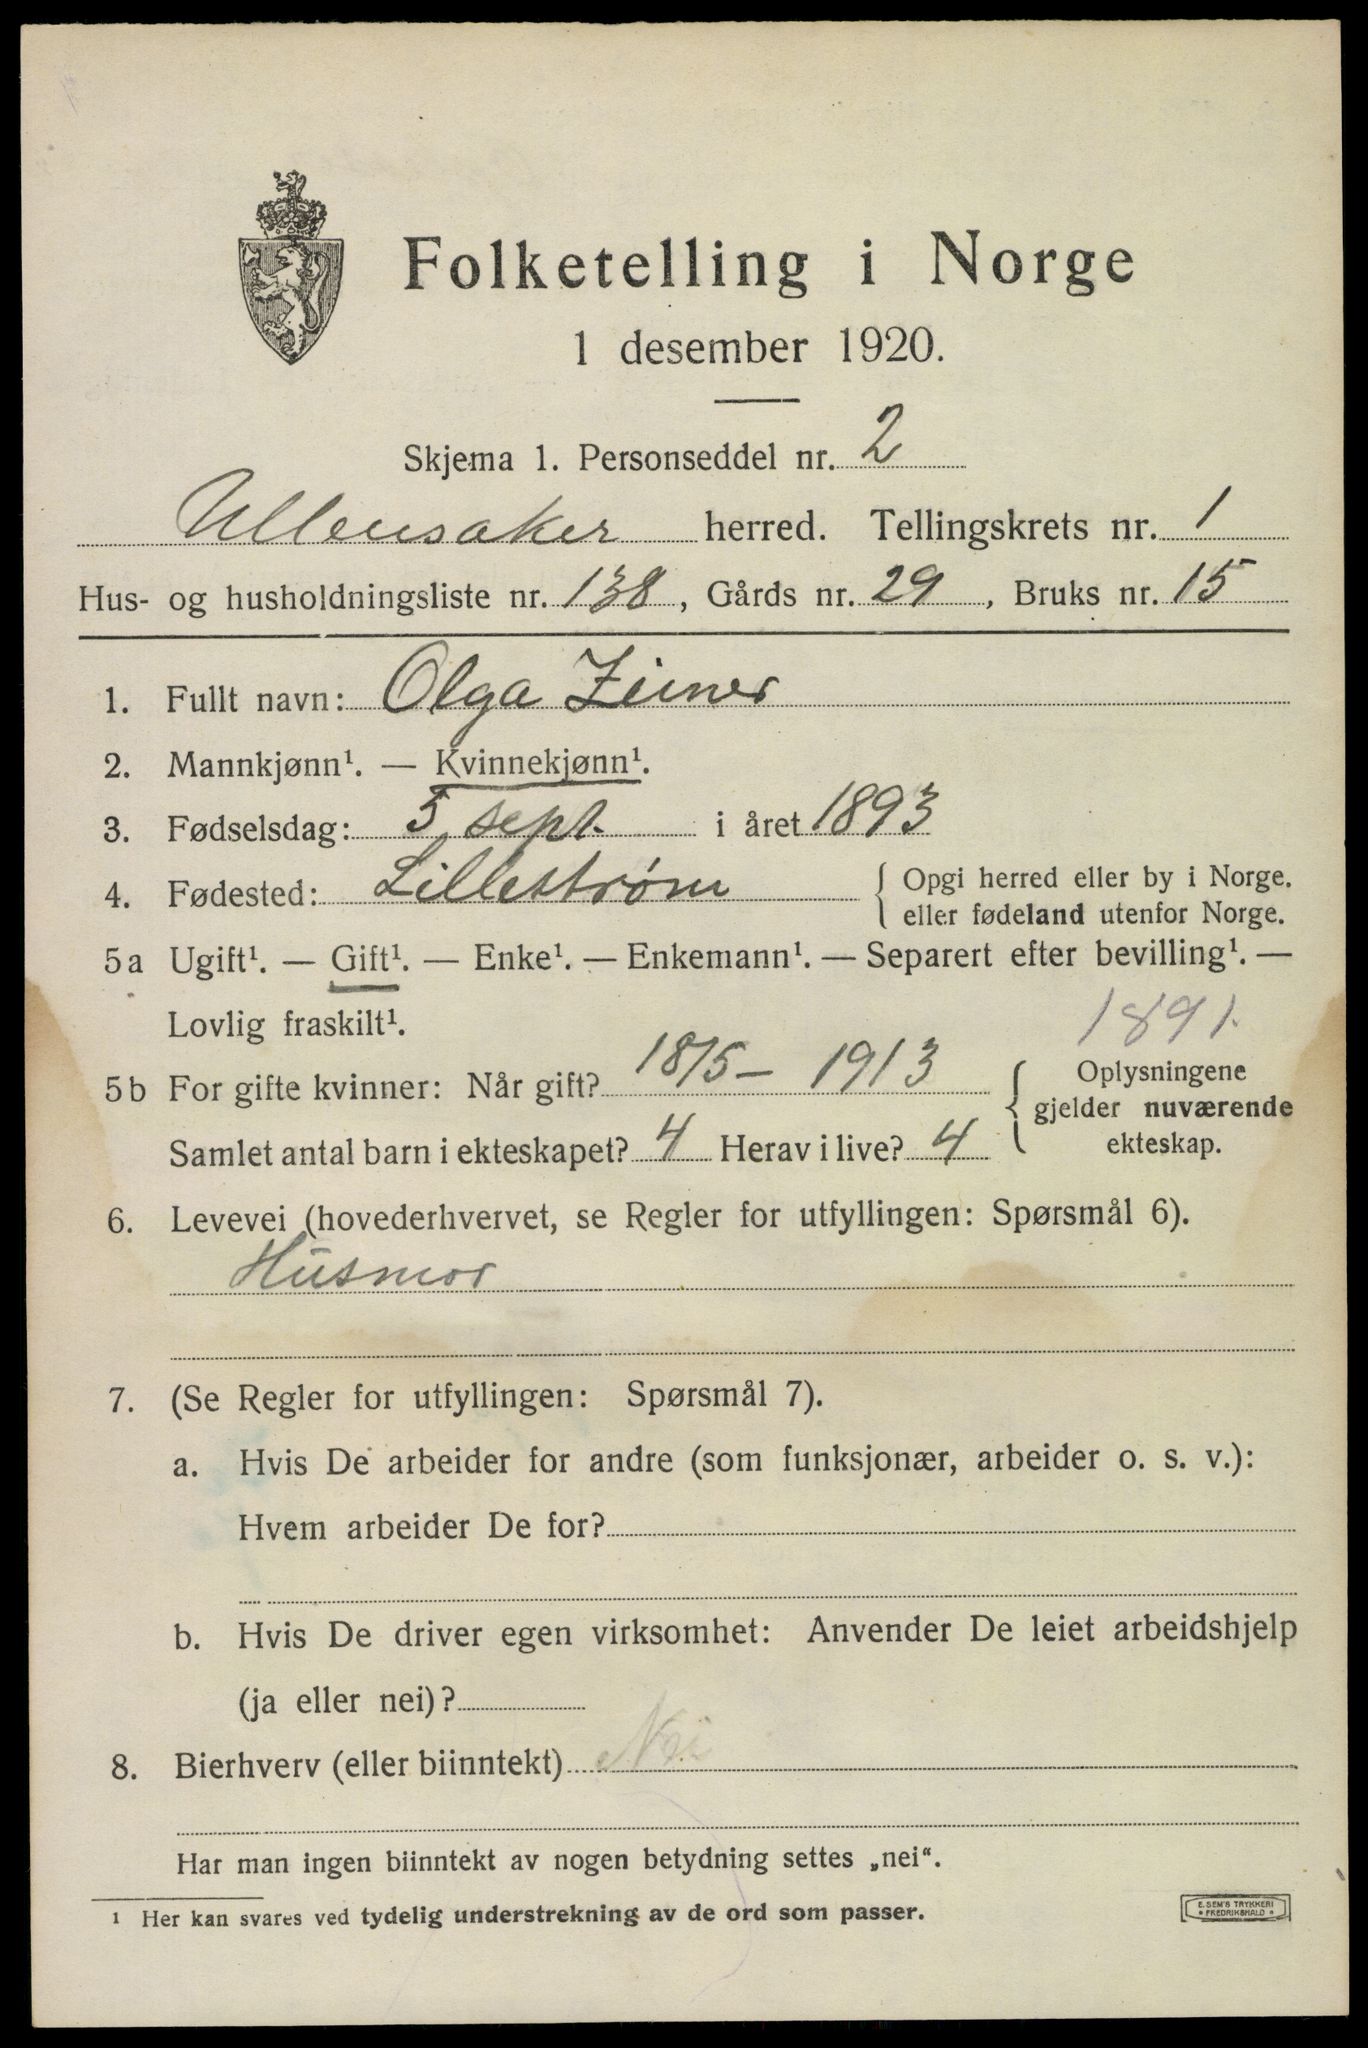 Folketelling i Norge
1 desember 1920.
Skjema 1. Personseddel nr. 2
Ullensaker herred. Tellingskrets nr. 1
Hus- og husholdningsliste nr. 138, Gårds nr. 29, Bruks nr. 15
1. Fullt navn: Olga Zeiner
2. Mannkjønn¹. — Kvinnekjønn¹.
3. Fødselsdag: 5 sept. i året 1893
4. Fødested: Lillestrøm { Opgi herred eller by i Norge.
eller fødeland utenfor Norge.
5a Ugift¹. — Gift¹. — Enke¹. — Enkemann¹. — Separert efter bevilling¹. —
Lovlig fraskilt¹.
1891.
5b For gifte kvinner: Når gift? 18/5 – 1913 { Oplysningene
gjelder nuværende
ekteskap.
Samlet antal barn i ekteskapet? 4 Herav i live? 4
6. Levevei (hovederhvervet, se Regler for utfyllingen: Spørsmål 6).
Husmor
7. (Se Regler for utfyllingen: Spørsmål 7).
a. Hvis De arbeider for andre (som funksjonær, arbeider o. s. v.):
Hvem arbeider De for?
b. Hvis De driver egen virksomhet: Anvender De leiet arbeidshjelp
(ja eller nei)?
8. Bierhverv (eller biinntekt) Nei
Har man ingen biinntekt av nogen betydning settes „nei“.
¹ Her kan svares ved tydelig understrekning av de ord som passer.
E. SEM'S TRYKKERI
* FREDRIKSHALD *